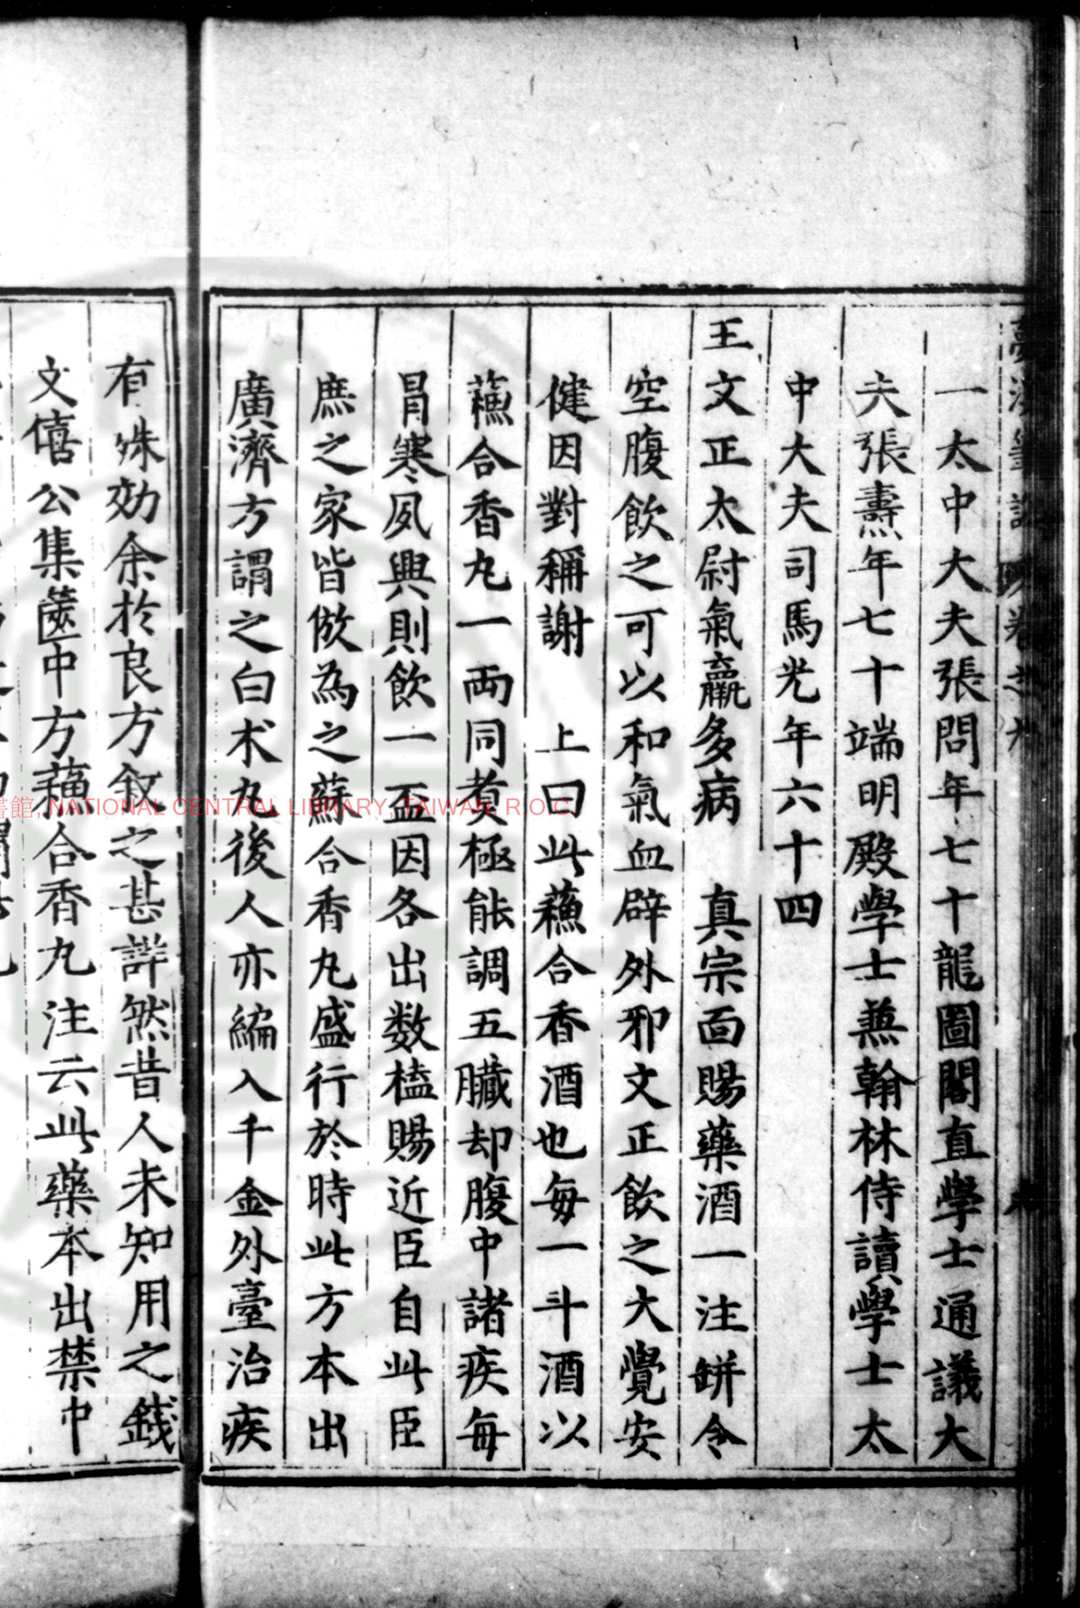 一太中大夫張問年七十龍圖閣直學士通議大
夫張燾年七十端明殿學士兼翰林侍讀學士太
中大夫司馬光年六十四
王文正太尉氣羸多病　真宗面賜藥酒一注缾令
空腹飲之可以和氣血辟外邪文正飲之大覺安
健因對稱謝　上曰此蘓合香酒也每一斗酒以
蘓合香丸一両同煮極能調五臟却腹中諸疾每
冐寒夙興則飲一盃因各出数榼賜近臣自此臣
庶之家皆倣為之蘇合香丸盛行於時此方本出
廣濟方謂之白朮丸後人亦編入千金外臺治疾
有殊効余於良方叙之甚詳然昔人未知用之錢
文僖公集篋中方蘓合香丸注云此藥本出禁中
NATIONAL CENTRAL LIBRARY, TAIWAN, R.O.C.